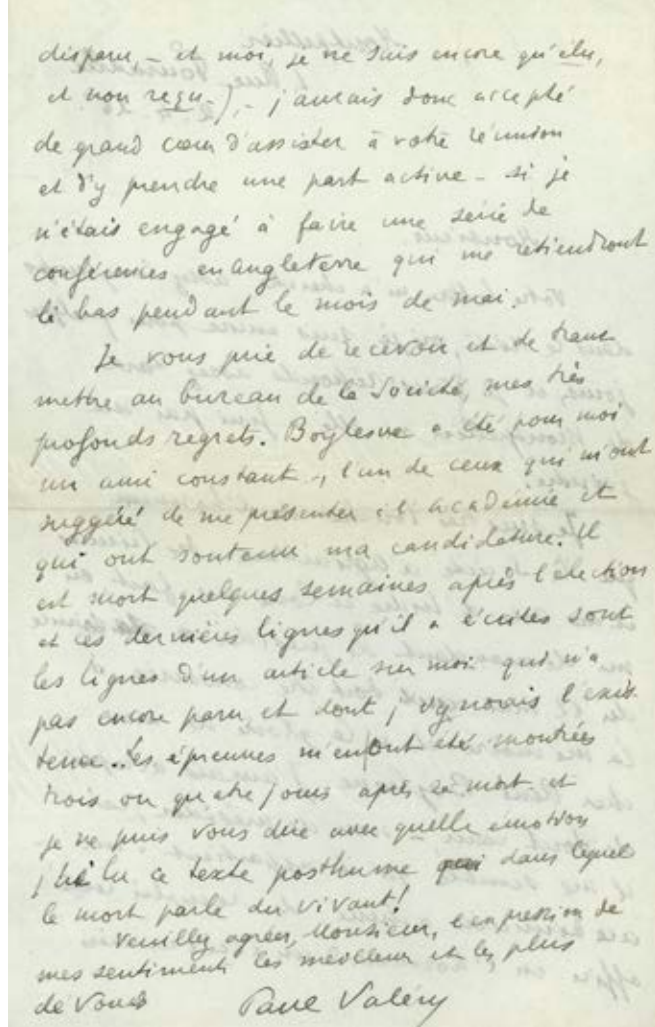 disparu, – et moi, je ne suis encore qu'élu,
et non reçu –), – j'aurais donc accepté
de grand cœur d'assister à votre réunion
et d'y prendre une part active – si je
n'étais engagé à faire une série de
conférences en angleterre qui me retiendront
là bas pendant le mois de mai.
Je vous prie de recevoir et de trans
mettre au bureau de la Société, mes très
profonds regrets. Boylesve a été pour moi
un ami constant –, l'un de ceux qui m'ont
suggéré de me présenter à l'académie et
qui ont soutenu ma candidature. Il
est mort quelques semaines après l'élection
et les dernières lignes qu'il a écrites sont
les lignes d'un article sur moi qui n'a
pas encore paru, et dont j'ignorais l'exis
tence.. Les épreuves m'en ont été montrées
trois ou quatre jours après sa mort et
je ne puis vous dire avec quelle émotion
j'ai lu ce texte posthume dans lequel
le mort parle du vivant!
Veuillez agréer, Monsieur, l'expression de
mes sentiments les meilleurs et les plus
dévoués Paul Valéry